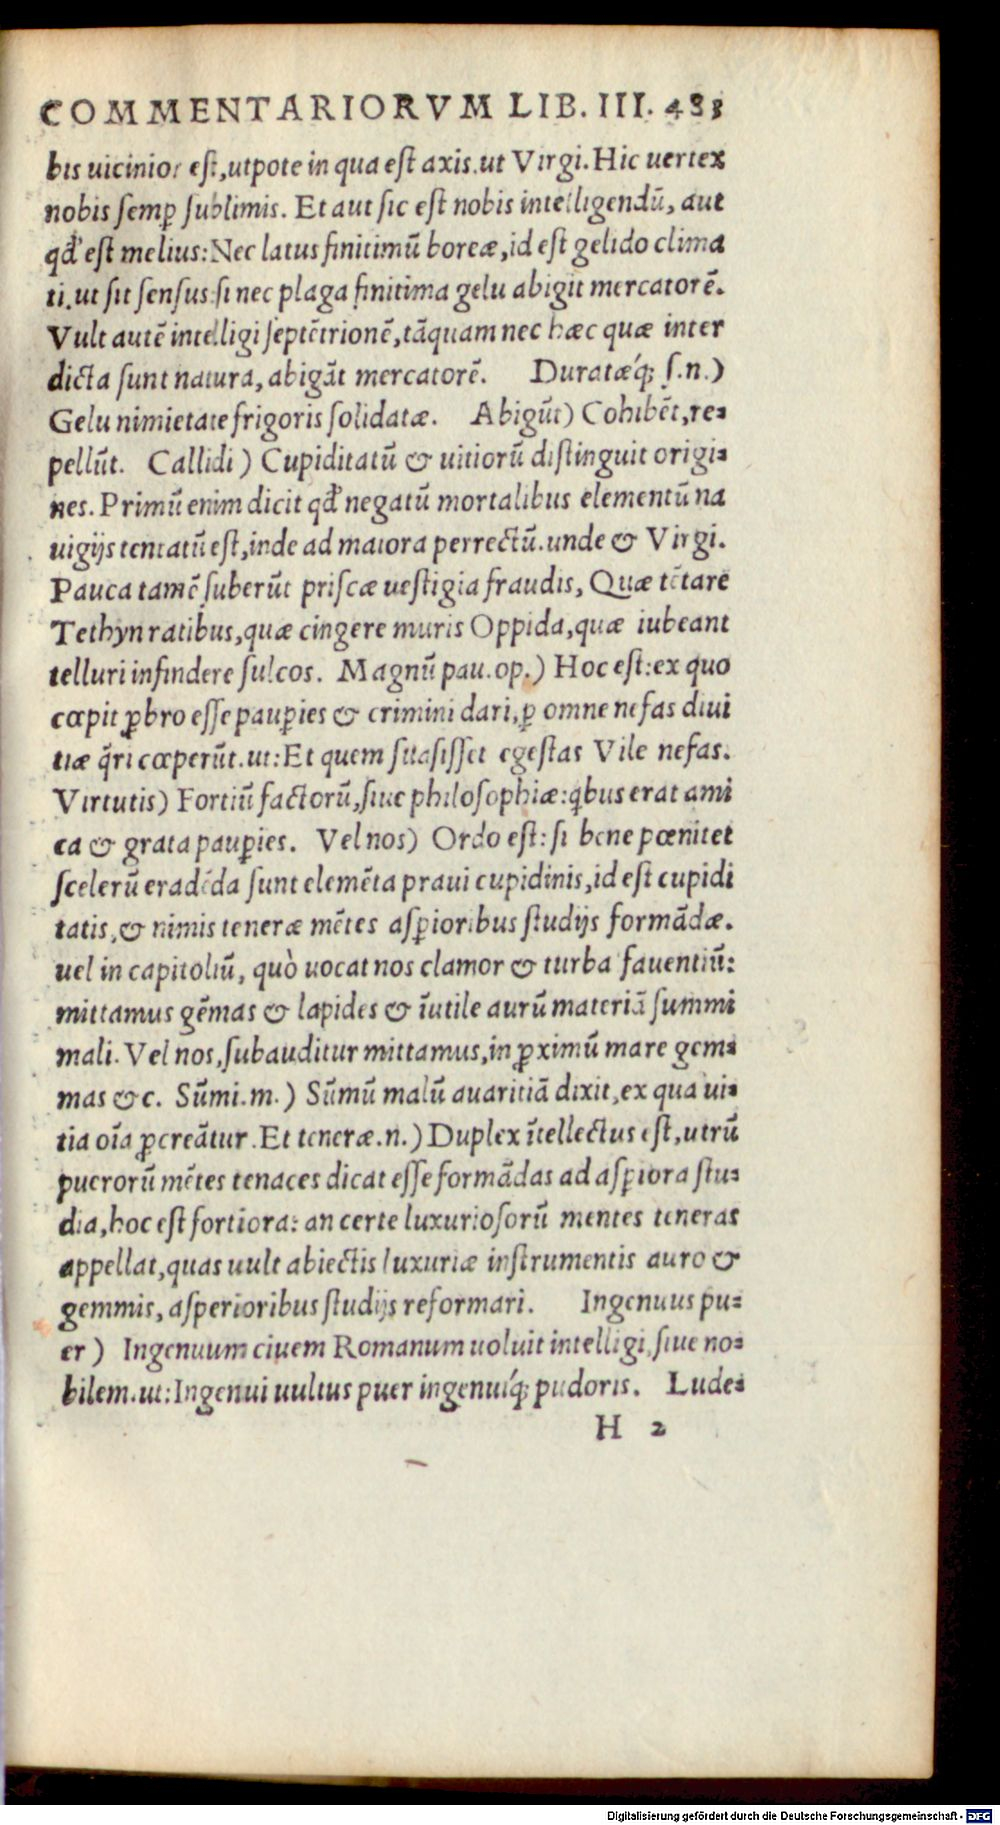 COMMENTARIORVM LIB. III. 483
bis uicinior est, utpote in qua est axis. ut Virgi. Hic uertex
nobis semꝑ sublimis. Et aut sic est nobis intelligendū, aut
qd̕ est melius: Nec latus finitimū boreæ, id est gelido clima
ti. ut sit sensus: si nec plaga finitima gelu abigit mercatorē.
Vult autē intelligi septētrionē, tāquam nec hæc quæ inter
dicta sunt natura, abigāt mercatorē. Duratæq́; s.n.)
Gelu nimietate frigoris solidatæ. Abigūt) Cohibēt, re-
pellūt. Callidi) Cupiditatū & uitiorū distinguit origi-
nes. Primū enim dicit qd̕ negatū mortalibus elementū na
uigijs tentatū est, inde ad maiora perrectū. unde & Virgi.
Pauca tamē suberūt priscæ uestigia fraudis, Quæ tētare
Tethyn ratibus, quæ cingere muris Oppida, quæ iubeant
telluri infindere sulcos. Magnū pau. op.) Hoc est: ex quo
cœpit ꝓbro esse pauꝑies & crimini dari, ꝑ omne nefas diui
tiæ q̄ri cœperūt. ut: Et quem sitasisset egestas Vile nefas.
Virtutis) Fortiū factorū, siue philosophiæ: qbus erat ami
ca & grata pauꝑies. Vel nos) Ordo est: si bene pœnitet
scelerū eradēda sunt elemēta praui cupidinis, id est cupidi
tatis, & nimis teneræ mētes asꝑioribus studijs formādæ.
uel in capitoliū, quò uocat nos clamor & turba fauentiū:
mittamus gēmas & lapides & īutile aurū materiā summi
mali. Vel nos, subauditur mittamus, in ꝓximū mare gem-
mas &c. Sūmi. m.) Sūmū malū auaritiā dixit, ex qua ui-
tia oīa ꝓcreātur. Et teneræ. n.) Duplex ītellectus est, utrū
puerorū mētes tenaces dicat esse formādas ad asꝑiora stu-
dia, hoc est fortiora: an certe luxuriosorū mentes teneras
appellat, quas uult abiectis luxuriæ instrumentis auro &
gemmis, asperioribus studijs reformari. Ingenuus pu-
er) Ingenuum ciuem Romanum uoluit intelligi, siue no-
bilem. ut: Ingenui uultus puer ingenuíq́; pudoris. Lude-
H 2
Digitalisierung gefördert durch die Deutsche Forschungsgemeinschaft - DFG